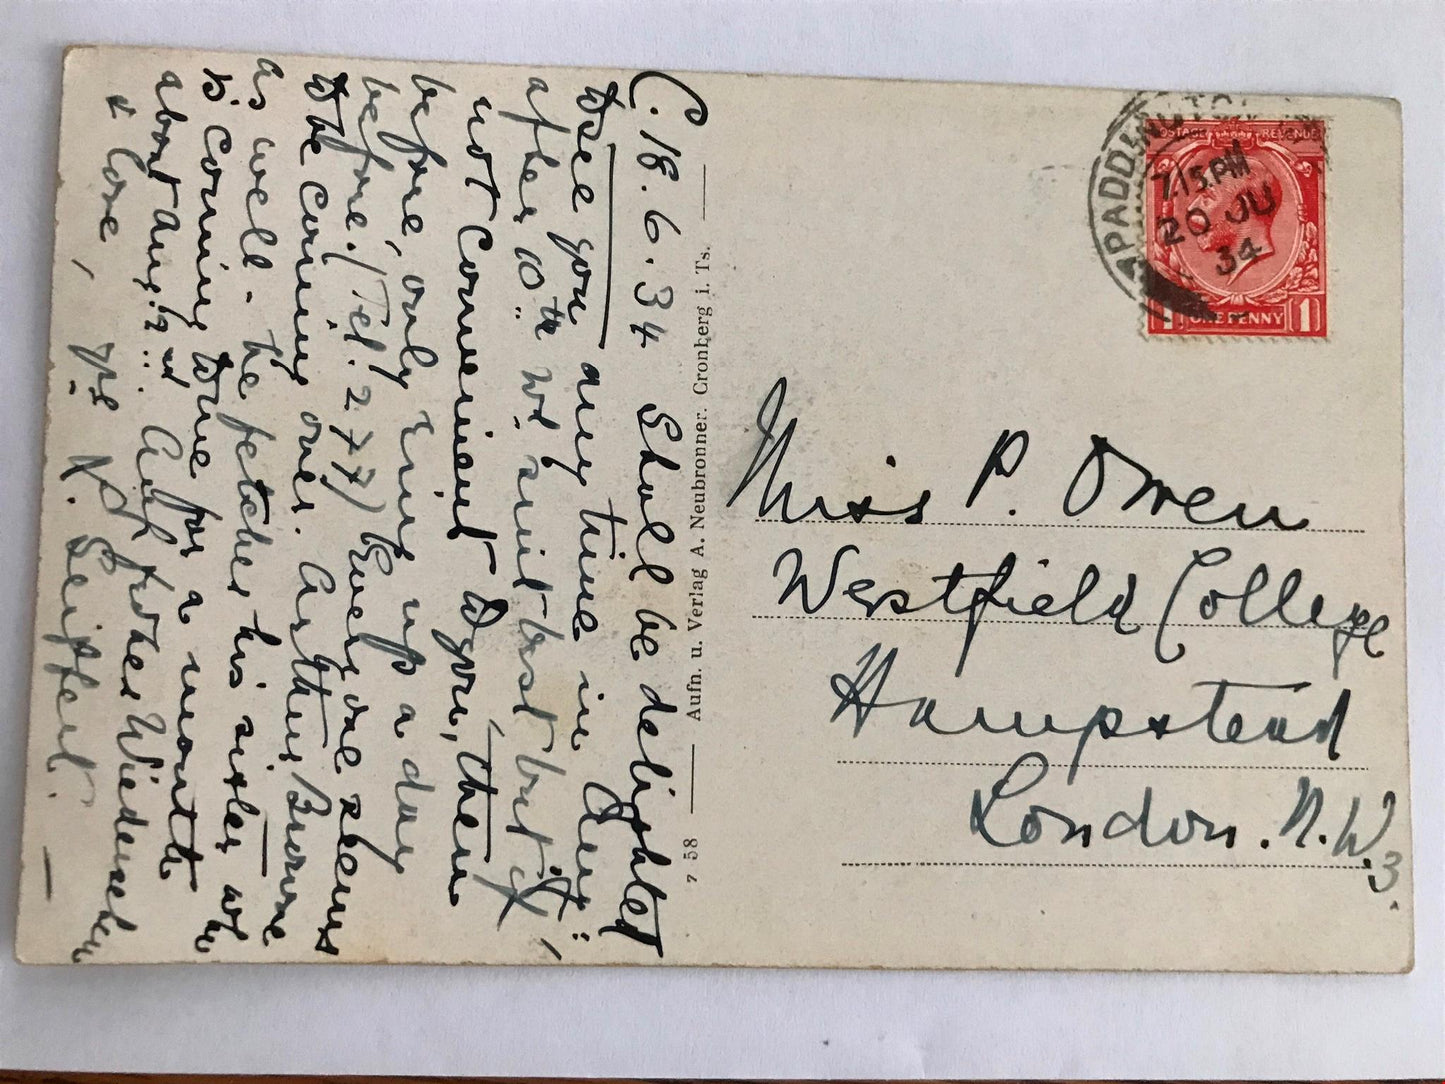 C. 18.6.34 Shall be delighted
to see you any time in Aug:
after 10th wd. suit best but if
not convenient to you, then
before, only ring up a day
before. (Tel. 277) Everyone seems
to be coming over. Arthur Browne
as well - he fetches his sister who
is coming here for a month
about Aug: 2nd. Auf frohes Wiedersehen
& love, yrs K. Seiffert.
7 58 Aufn. u. Verlag A. Neubronner. Cronberg i. Ts.
PADDINGTON
7.15 PM
20 JU
34
POSTAGE REVENUE
1 ONE PENNY 1
Miss P. Owen
Westfield College
Hampstead
London. N.W.3.